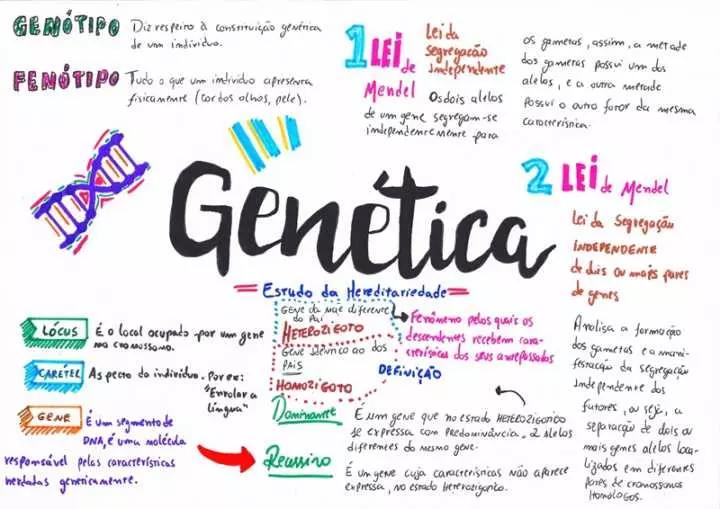 GENÓTIPO
Diz respeito à constituição genética
de um indivíduo.
FENÓTIPO
Tudo o que um indivíduo apresenta
fisicamente (cor dos olhos, pele).
1 LEI de Mendel
Lei da
segregação
Independente
Os dois alelos
de um gene segregam-se
independentemente para
os gametas, assim, a metade
dos gametas possui um dos
alelos, e a outra metade
possui o outro fator da mesma
característica.
Genética
2 LEI de Mendel
Lei da Segregação
INDEPENDENTE
de dois ou mais pares
de genes
Analisa a formação
dos gametas e a mani-
festação da segregação
independente dos
fatores, ou seja, a
separação de dois ou
mais genes alelos loca-
lizados em diferentes
pares de cromossomos
Homólogos.
Estudo da Hereditariedade
Fenômeno pelas quais os
descendentes recebem cara-
cterísticas dos seus antepassados
DEFINIÇÃO
Gene da mãe diferente
do Pai
HETEROZIGOTO
Gene idêntico ao dos
PAIS
HOMOZIGOTO
LÓCUS
É o local ocupado por um gene
no cromossomo.
CARETEL
Aspecto do indivíduo. Por ex:
"Enrolar a
língua"
GENE
É um segmento de
DNA, é uma molécula
responsável pelas características
herdadas geneticamente.
Dominante
É um gene que no estado HETEROZIGÓTICO
se expressa com PREDOMINÂNCIA. 2 alelos
diferentes do mesmo gene.
Recessivo
É um gene cuja características não aparece
expressa, no estado Heterozigótico.